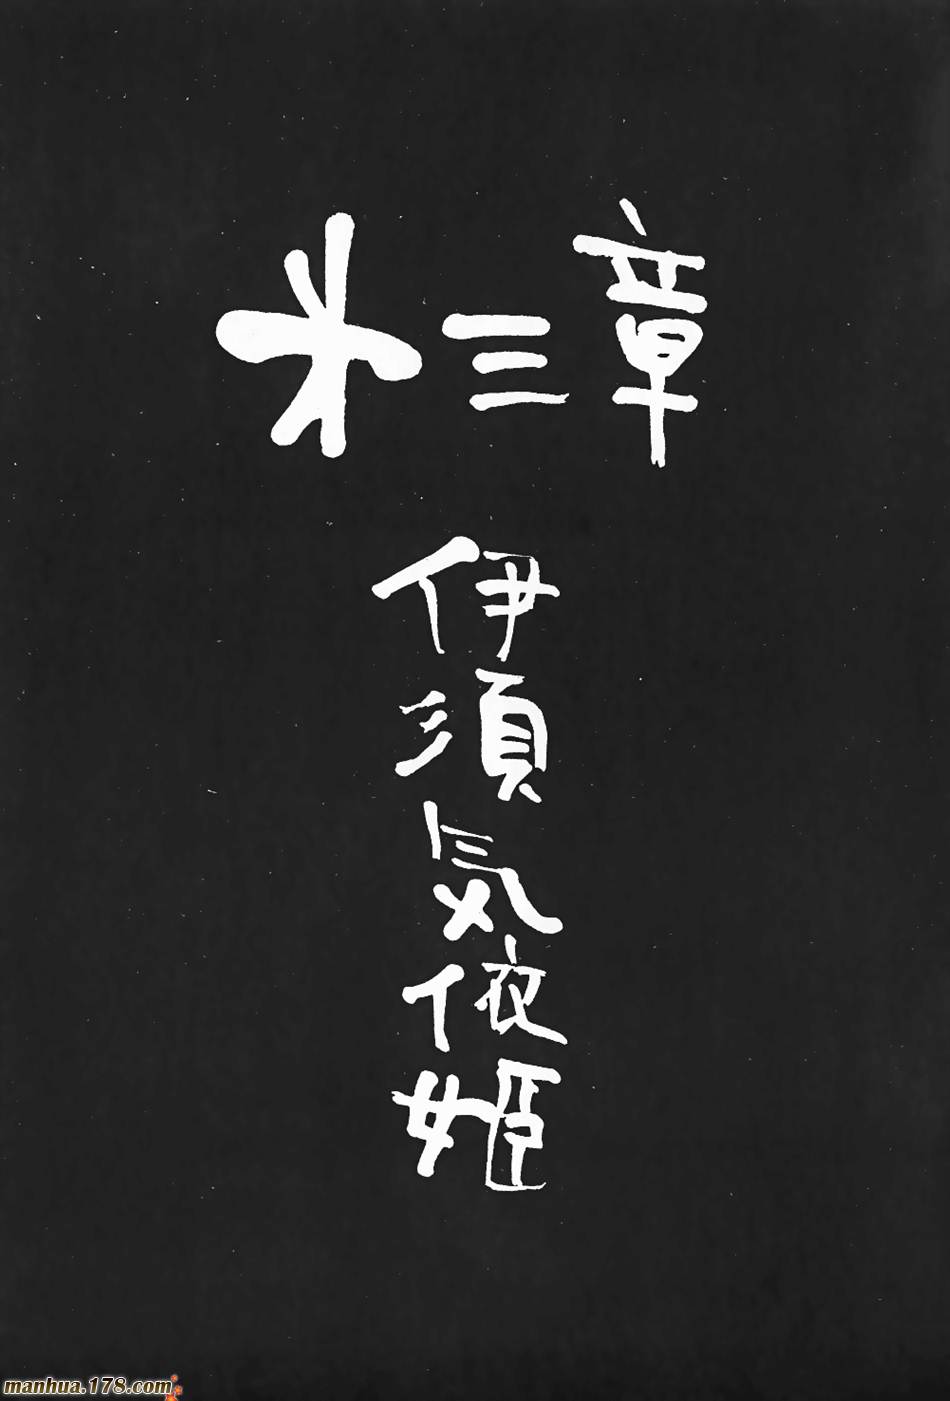 㐧三章
伊須気依姫
manhua.178.com